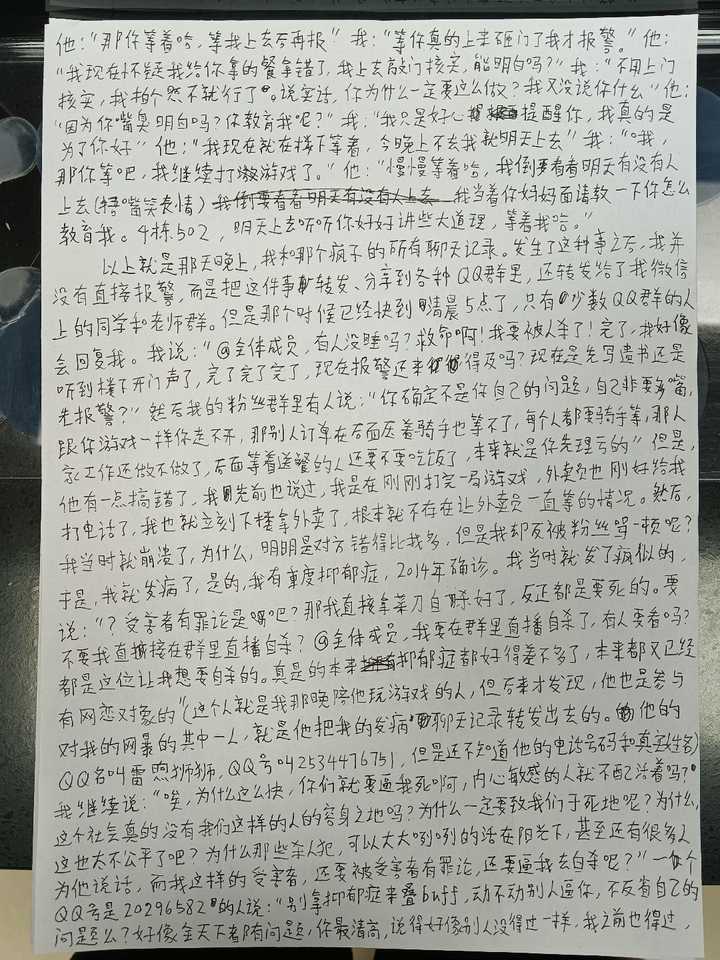 他：“那你等着哈，等我上去你再报” 我：“等你真的上来砸门了我才报警。” 他：
“我现在怀疑我给你拿的餐拿错了，我上去敲门核实，能明白吗？” 我：“不用上门
核实，我拍个照不就行了。说实话，你为什么一定要这么做？我又没说你什么” 他：
“因为你嘴臭明白吗？你教育我呢？” 我：“我只是好心提醒你，我真的是
为了你好” 他：“我现在就在楼下等着，今晚上不去我就明天上去” 我：“哦，
那你等吧，我继续打游戏了。” 他：“慢慢等着哈，我倒要看看明天有没有人
上去(捂嘴笑表情) 我当着你妈妈面请教一下你怎么
教育我。4栋502，明天上去听听你好好讲些大道理，等着我哈。”
以上就是那天晚上，我和那个疯子的所有聊天记录。发生了这种事之后，我并
没有直接报警，而是把这件事转发、分享到各种QQ群里，还转发给了我微信
上的同学和老师群。但是那个时候已经快到清晨5点了，只有少数QQ群的人
会回复我。我说：“@全体成员，有人没睡吗？救命啊！我要被人杀了！完了，我好像
听到楼下开门声了，完了完了完了，现在报警还来得及吗？现在是先写遗书还是
先报警？” 然后我的粉丝群里有人说：“你确定不是你自己的问题，自己非要多嘴，
跟你游戏一样你走不开，那别人订单在后面压着骑手也等不了，每个人都要骑手等，那人
家工作还做不做了，后面等着送餐的人还要不要吃饭了，本来就是你先理亏的” 但是，
他有一点搞错了，我先前也说过，我是在刚刚打完一局游戏，外卖员也刚好给我
打电话了，我也就立刻下楼拿外卖了，根本就不存在让外卖员一直等的情况。然后，
我当时就崩溃了，为什么，明明是对方错得比我多，但是我却反被粉丝骂一顿呢？
于是，我就发病了，是的，我有重度抑郁症，2014年确诊。我当时就发了疯似的，
说：“？受害者有罪论是吧？那我直接拿菜刀自杀好了，反正都是要死的。要
不要我直接在群里直播自杀？@全体成员，我要在群里直播自杀了，有人要看吗？
都是这位让我想要自杀的。真是的本来抑郁症都好得差不多了，本来都又已经
有网恋对象的”(这个人就是我那晚陪他玩游戏的人，但后来才发现，他也是参与
对我的网暴的其中一人，就是他把我的发病聊天记录转发出去的。他的
QQ名叫雷煦狮狮，QQ号叫2534476751，但是还不知道他的电话号码和真实姓名)
我继续说：“唉，为什么这么快，你们就要逼我死啊，内心敏感的人就不配活着吗？
这个社会真的没有我们这样的人的容身之地吗？为什么一定要致我们于死地呢？为什么，
这也太不公平了吧？为什么那些杀人犯，可以大大咧咧的活在阳光下，甚至还有很多人
为他说话，而我这样的受害者，还要被受害者有罪论，还要逼我去自杀呢？” 一个
QQ号是20296582的人说：“别拿抑郁症来叠buff，动不动别人逼你，不反省自己的
问题么？好像全天下都有问题，你最清高，说得好像别人没得过一样，我之前也得过，